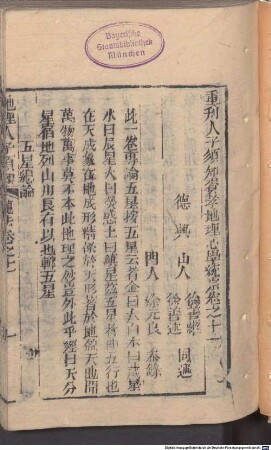 Bayerische
Staatsbibliothek
München
重刊人子須知資孝地理心學統宗卷之十一
德興 山人 徐善繼
徐善述 同著
門人 徐元良 參錄
此一卷專論五星按五星云者金曰太白木曰歲星
水曰辰星火曰熒惑土曰鎮星蓋五星者卽五行也
在天成象在地成形精係於天形著於地盈天地間
萬物萬事莫不本此地理之妙豈外此乎經曰天分
星宿地列山川良有以也輯五星
五星總論